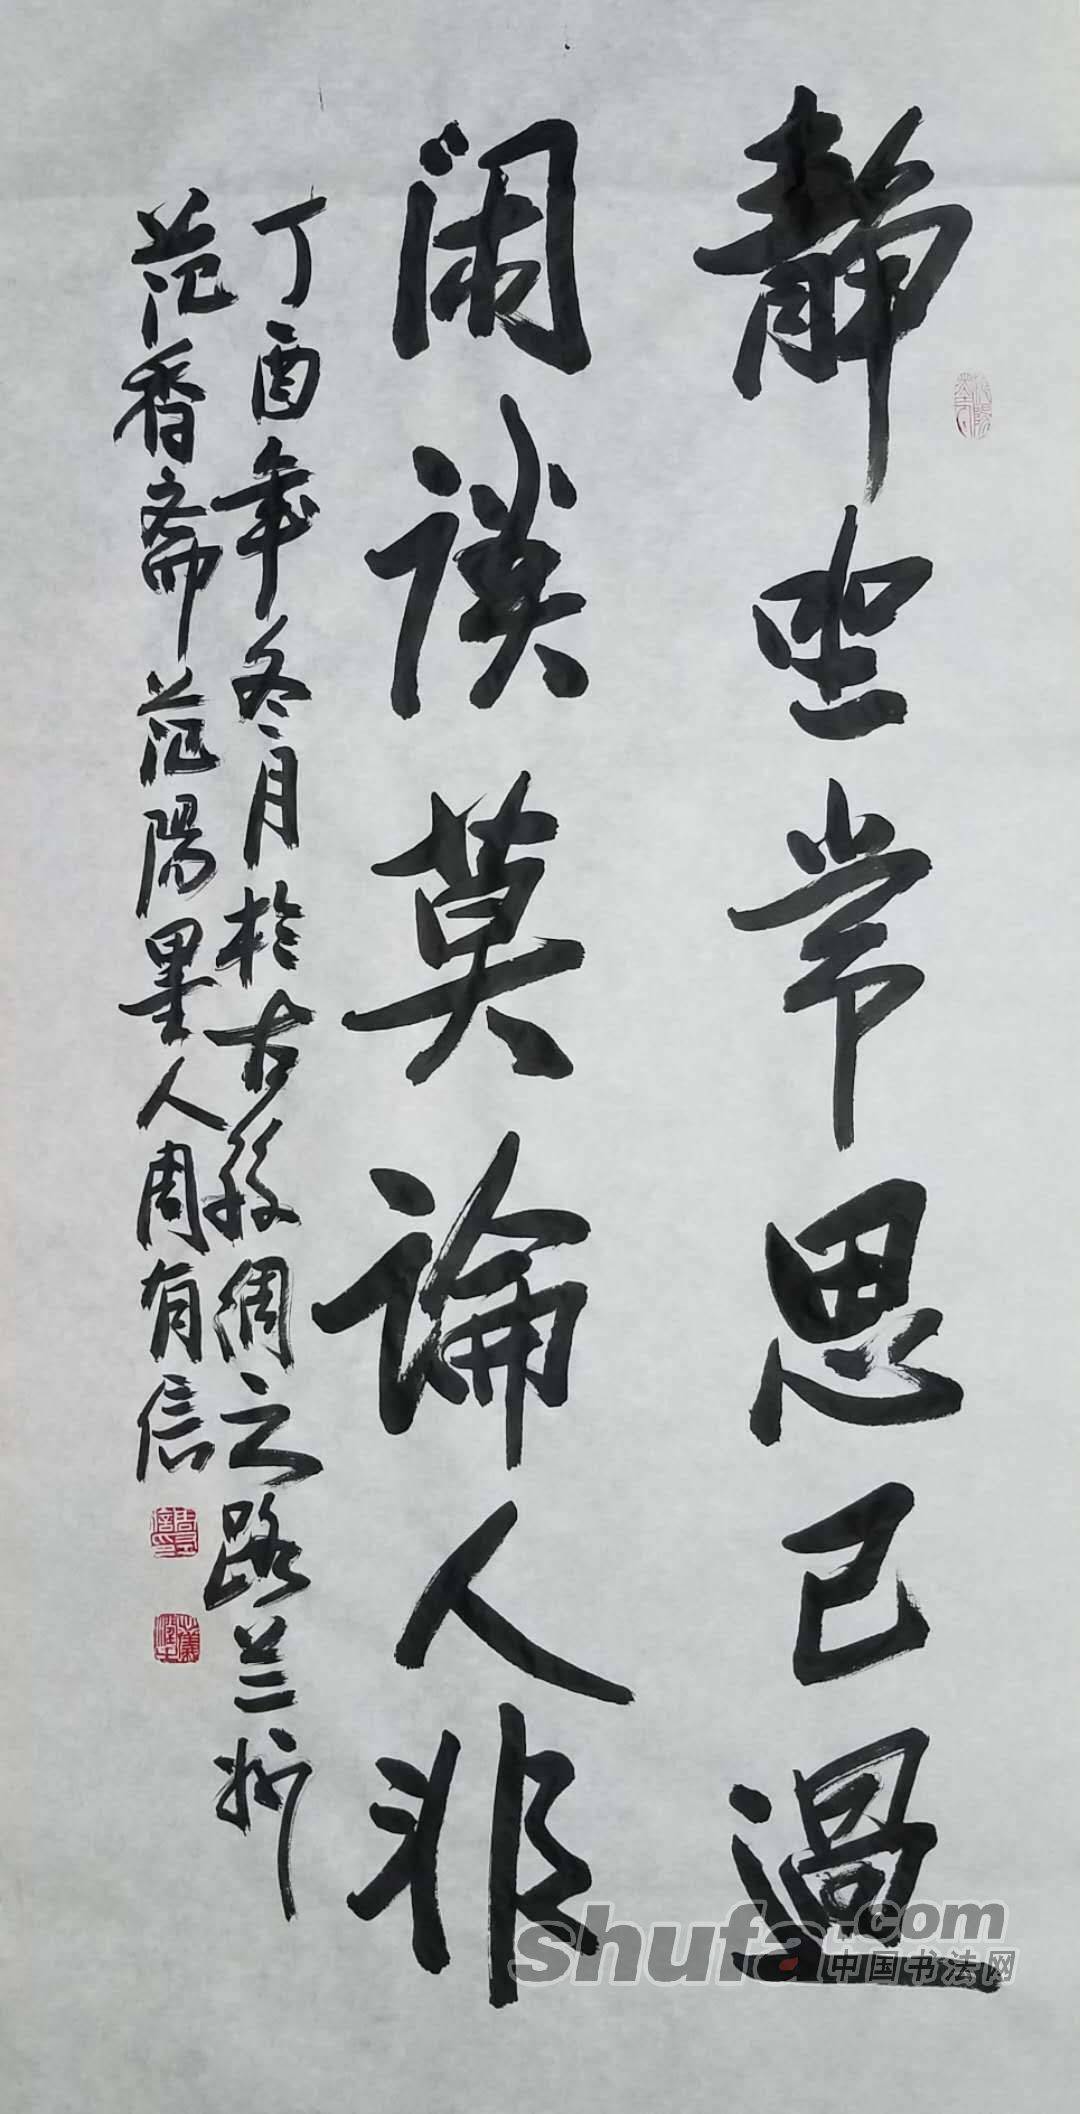 靜坐常思己過
闲談莫論人非
丁酉年冬月於古絲綢之路兰州
范香斋范陽墨人周有信
shufa.com
中国书法网